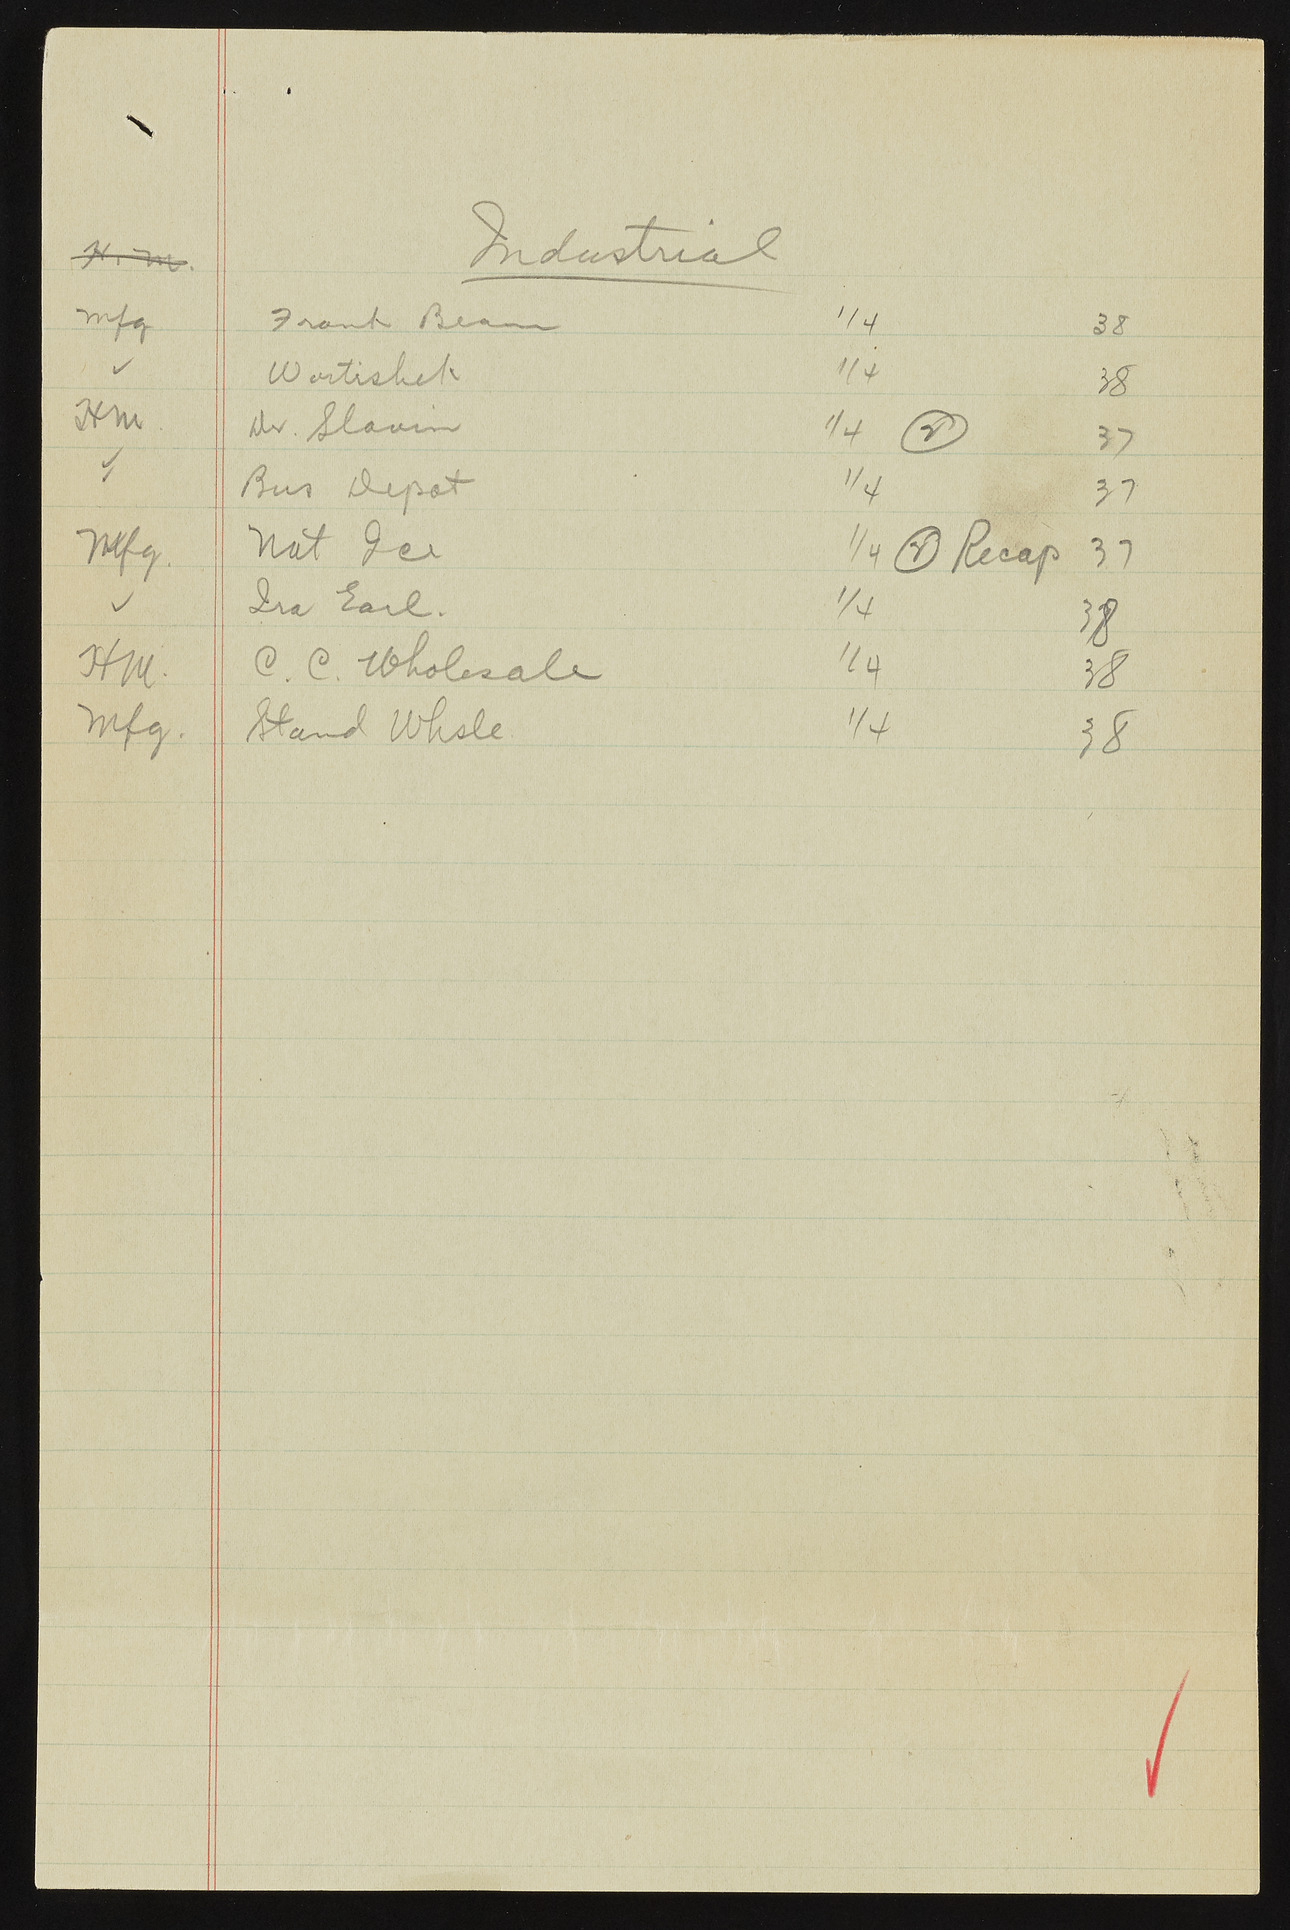 Industrial
H. M.
Mfg Frank Beam 1/4 38
✓ Wortishek 1/4 38
HM. Dr. Slavin 1/4 37
✓ Bus Depot 1/4 37
Mfg. Nat Ice 1/4 Recap 37
✓ Ira Earl. 1/4 38
HM. C. C. Wholesale 1/4 38
Mfg. Stand Whsle 1/4 38
✓